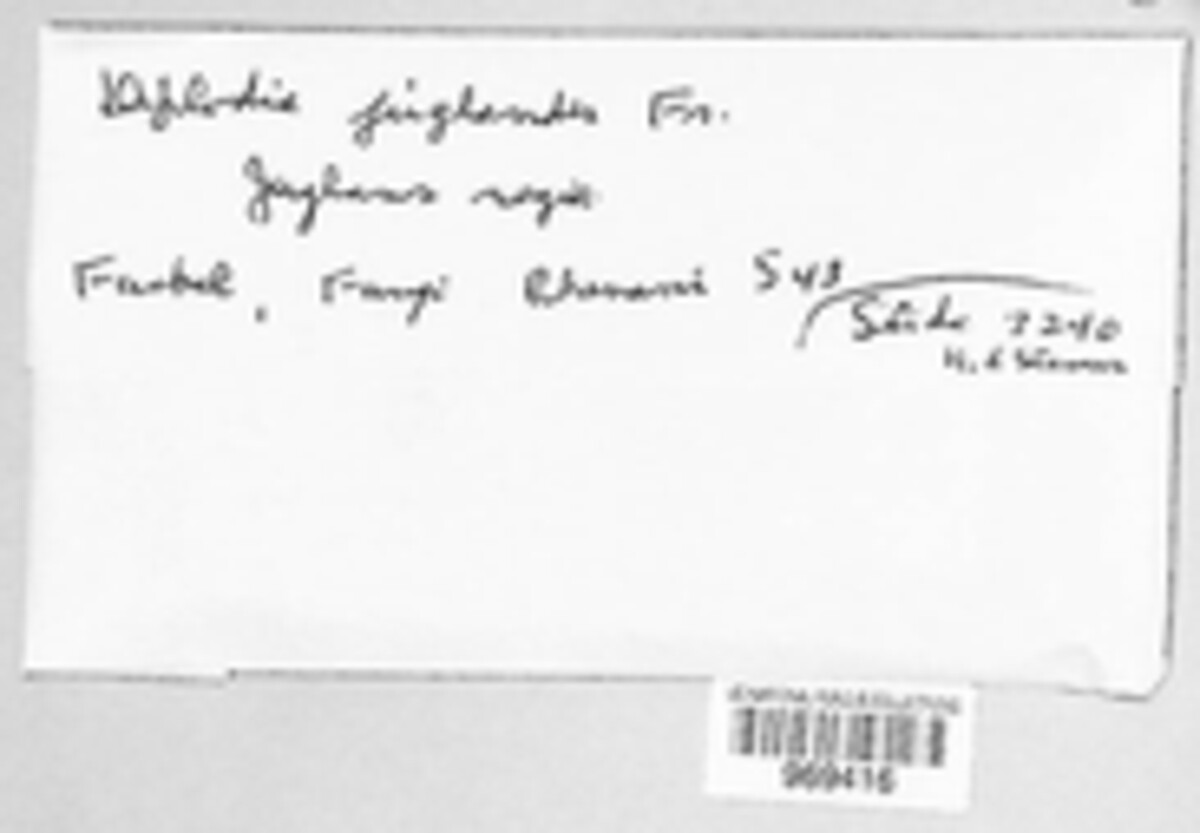 Diplodia juglandis Fr.
Juglans regia
Fuckel, Fungi Rhenani 543
Slide 3240
969416